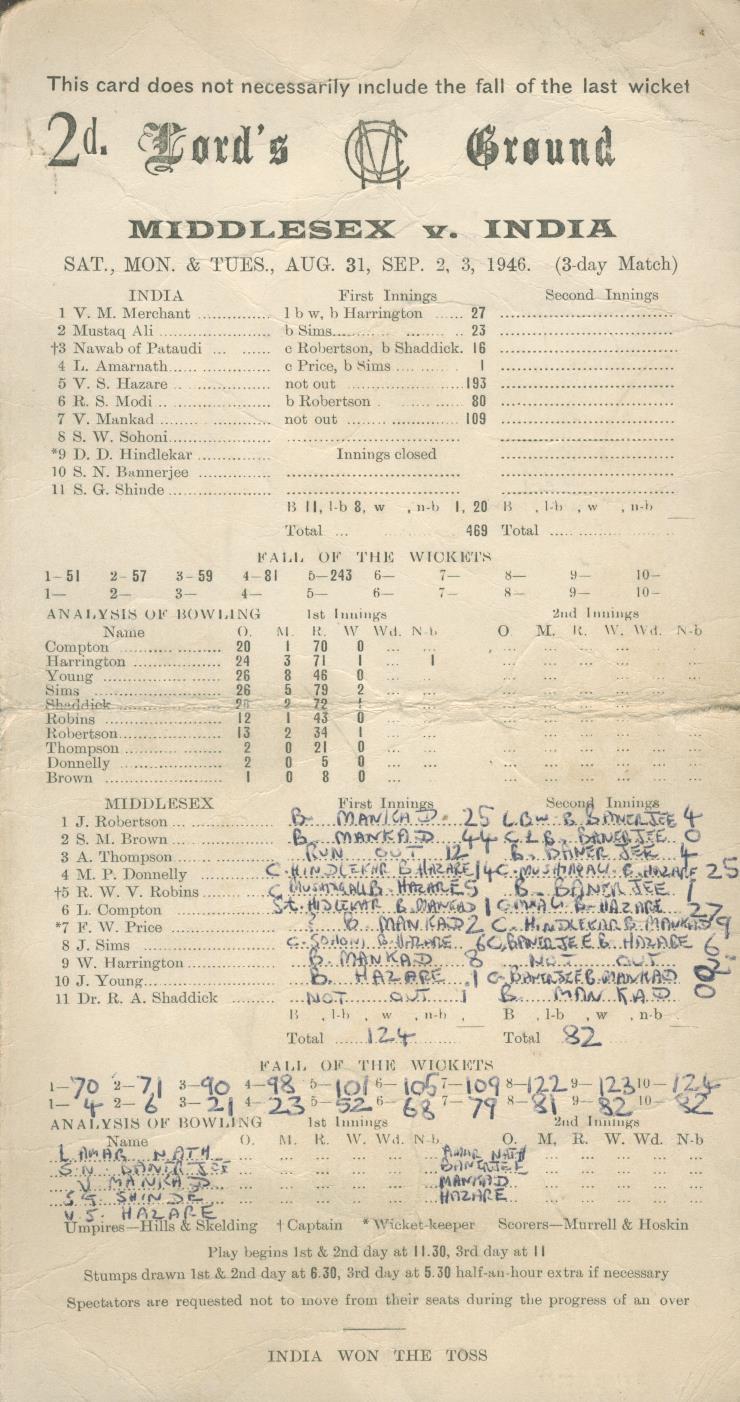 This card does not necessarily include the fall of the last wicket
2d. Lord's MCC Ground
MIDDLESEX v. INDIA
SAT., MON. & TUES., AUG. 31, SEP. 2, 3, 1946. (3-day Match)
INDIA First Innings Second Innings
1 V. M. Merchant l b w, b Harrington 27
2 Mustaq Ali b Sims 23
†3 Nawab of Pataudi c Robertson, b Shaddick. 16
4 L. Amarnath c Price, b Sims 1
5 V. S. Hazare not out 193
6 R. S. Modi b Robertson 80
7 V. Mankad not out 109
8 S. W. Sohoni
*9 D. D. Hindlekar Innings closed
10 S. N. Bannerjee
11 S. G. Shinde
B 11, l-b 8, w , n-b 1, 20 B , l-b , w , n-b
Total 469 Total
FALL OF THE WICKETS
1—51 2—57 3—59 4—81 5—243 6— 7— 8— 9— 10—
1— 2— 3— 4— 5— 6— 7— 8— 9— 10—
ANALYSIS OF BOWLING 1st Innings 2nd Innings
Name O. M. R. W Wd. N-b O. M. R. W. Wd. N-b
Compton 20 1 70 0
Harrington 24 3 71 1 1
Young 26 8 46 0
Sims 26 5 79 2
Shaddick 2 72
Robins 12 1 43 0
Robertson 13 2 34 1
Thompson 2 0 21 0
Donnelly 2 0 5 0
Brown 1 0 8 0
MIDDLESEX First Innings Second Innings
1 J. Robertson B. MANKAD. 25 L.B.W. B. BANERJEE 4
2 S. M. Brown B. MANKAD 44 C. L B. BANERJEE 0
3 A. Thompson RUN OUT 12 B. BANERJEE 4
4 M. P. Donnelly C. HINDLEKAR B HAZARE 14 C. MUSHTAQALI B. HAZARE 25
†5 R. W. V. Robins C B. HAZARE 5 B. BANERJEE 1
6 L. Compton ST. HIDLEKAR B. MANKAD 1 B. HAZARE 27
*7 F. W. Price B. MANKAD 2 C. HINDLEKAR B. MANKAD 9
8 J. Sims C. SOHONI B HAZARE 6 C. BANERJEE B. HAZARE 6
9 W. Harrington B. MANKAD 8 NOT OUT 2
10 J. Young B. HAZARE 1 C. BANERJEE B. MANKAD 0
11 Dr. R. A. Shaddick NOT OUT 1 B. MANKAD 0
B , l-b , w , n-b , B , l-b , w , n-b
Total 124 Total 82
FALL OF THE WICKETS
1—70 2—71 3—90 4—98 5—101 6—105 7—109 8—122 9—123 10—124
1—4 2—6 3—21 4—23 5—52 6—68 7—79 8—81 9—82 10—82
ANALYSIS OF BOWLING 1st Innings 2nd Innings
Name O. M. R. W. Wd. N-b O. M, R. W. Wd. N-b
L AMAR NATH AMAR NATH
S. N. BANERJEE BANERJEE
V MANKAD MANKAD
S G. SHINDE HAZARE
V. S. HAZARE
Umpires—Hills & Skelding † Captain * Wicket-keeper Scorers—Murrell & Hoskin
Play begins 1st & 2nd day at 11.30, 3rd day at 11
Stumps drawn 1st & 2nd day at 6.30, 3rd day at 5.30 half-an-hour extra if necessary
Spectators are requested not to move from their seats during the progress of an over
INDIA WON THE TOSS